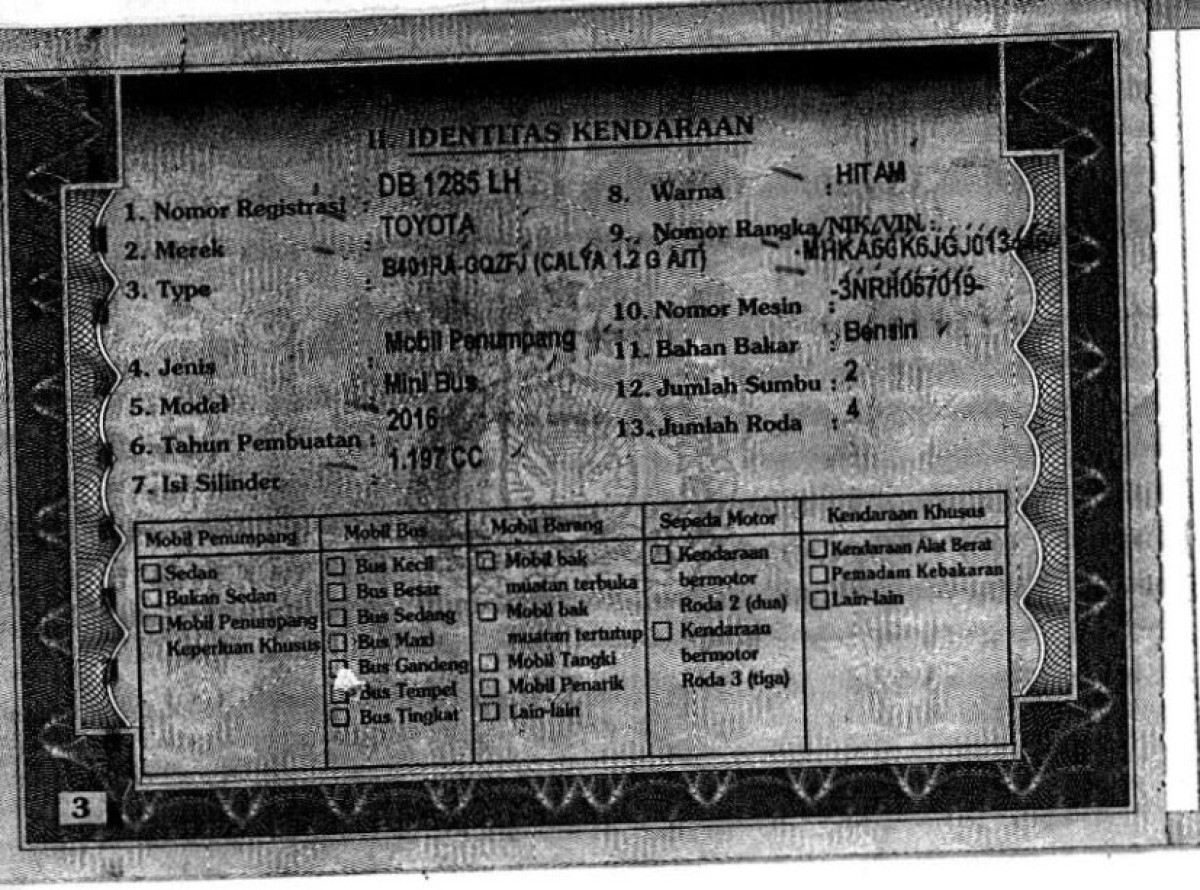 II. IDENTITAS KENDARAAN
1. Nomor Registrasi : DB 1285 LH
2. Merek : TOYOTA
3. Type : B401RA-GQZFJ (CALYA 1.2 G A/T)
4. Jenis : Mobil Penumpang
5. Model : Mini Bus
6. Tahun Pembuatan : 2016
7. Isi Silinder : 1.197 CC
8. Warna : HITAM
9. Nomor Rangka/NIK/VIN :
10. Nomor Mesin : -3NRH057019-
11. Bahan Bakar : Bensin
12. Jumlah Sumbu : 2
13. Jumlah Roda : 4
Mobil Penumpang
Sedan
Bukan Sedan
Mobil Penumpang
Keperluan Khusus
Mobil Bus
Bus Kecil
Bus Besar
Bus Sedang
Bus Maxi
Bus Gandeng
Bus Tempel
Bus Tingkat
Mobil Barang
Mobil bak
muatan terbuka
Mobil bak
muatan tertutup
Mobil Tangki
Mobil Penarik
Lain-lain
Sepeda Motor
Kendaraan
bermotor
Roda 2 (dua)
Kendaraan
bermotor
Roda 3 (tiga)
Kendaraan Khusus
Kendaraan Alat Berat
Pemadam Kebakaran
Lain-lain
3